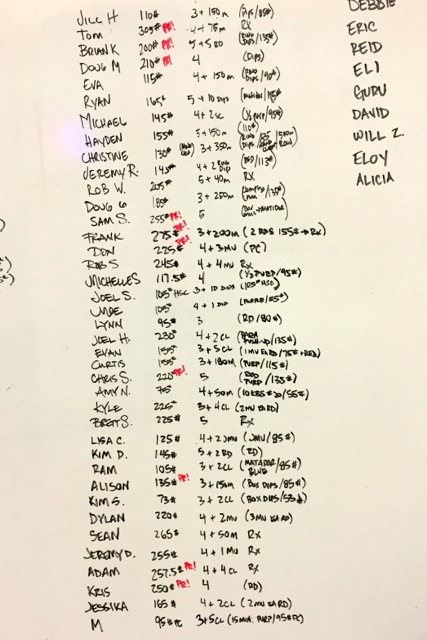 JILL H 110# 3+150m (Dips/85#)
Tom 305# PR! 4+75m RX
BRIAN K 200# PR! 5+5 RD
DOUG M 210# PR! 4 (Dips)
EVA 115# 4+150m
RYAN 165# 5+10 Dips
MICHAEL 145# 4+2CL
HAYDEN 155# 5+150m
CHRISTINE 130# 3+350m
JEREMY R. 145# 4+2
ROB W. 205# 5+40m RX
DOUG G 185# 3+250m
SAM S. 255# PR! 5
FRANK 275# PR! 3+200m (2 RDS 155#→RX)
DON 225# PR! 4+3MU (PC)
ROB S 245# 4+4MU RX
MICHELLE S 117.5# 4
JOEL S. 105# HSC 3+10 DIPS (105# HSC)
JADE 105# 4+1 DIP
LYNN 95# 3 (RD/80#)
JOEL H. 230# 4+2CL
EVAN 155# 3+5CL
CURTIS 155# 3+180m (PURP/115#)
CHRIS S. 220# PR! 5 (RED PURP/135#)
AMY N. 75# 4+50m
KYLE 225# 3+4CL (2MU EA RD)
BRETT S. 225# 5 RX
LISA C. 125# 4+2JMU (JMU/85#)
KIM D. 145# 5+2RD (RD)
RAM 105# 3+2CL (MATADOR BLUE/85#)
ALISON 135# PR! 3+150m (BOX DIPS/85#)
KIM S. 73# 3+2CL (BOX DIPS/53#)
DYLAN 220# 4+2MU (3MU EA RD)
SEAN 265# 4+50m RX
JEREMY D. 255# 4+1MU RX
ADAM 257.5# PR! 4+4CL RX
KRIS 250# PR! 4 (RD)
JESSIKA 165# 4+2CL (2MU EA RD)
M 95# PC 3+5CL (15 MIN. PURP/95# PC)
DEBBIE
ERIC
REID
ELI
GURU
DAVID
WILL Z.
ELOY
ALICIA